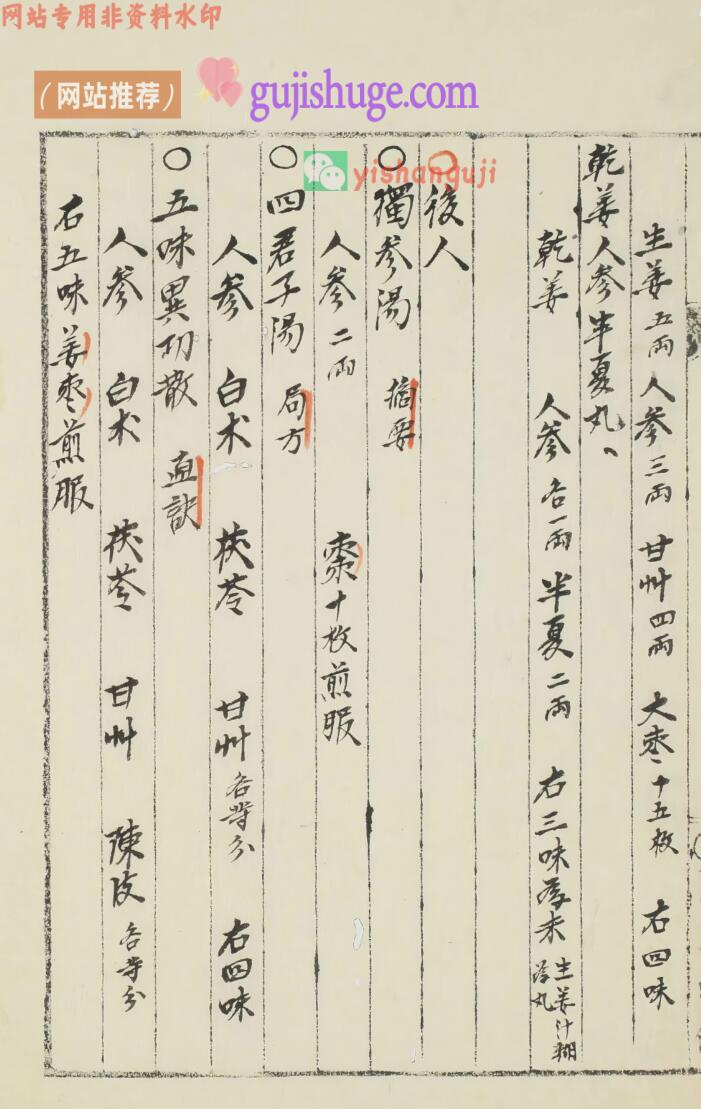 网站专用非资料水印
（网站推荐） gujishuge.com
yishanguji
生姜五两 人参三两 甘艸四两 大枣十五枚 右四味
乾姜人参半夏丸、
乾姜 人参各一两 半夏二两 右三味為末 生姜汁糊為丸
○後人
○獨参湯 摘要
人参二两 棗十枚煎服
○四君子湯 局方
人参 白朮 茯苓 甘艸各等分 右四味
○五味異功散 直訣
人参 白朮 茯苓 甘艸 陳皮各等分
右五味姜枣煎服